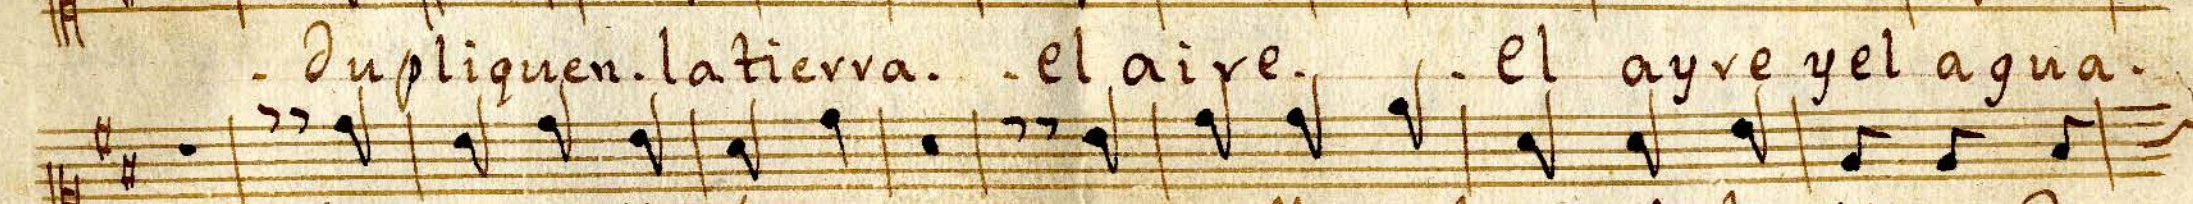 . dupliquen. la tierra. . el aire. . el ayre y el agua.